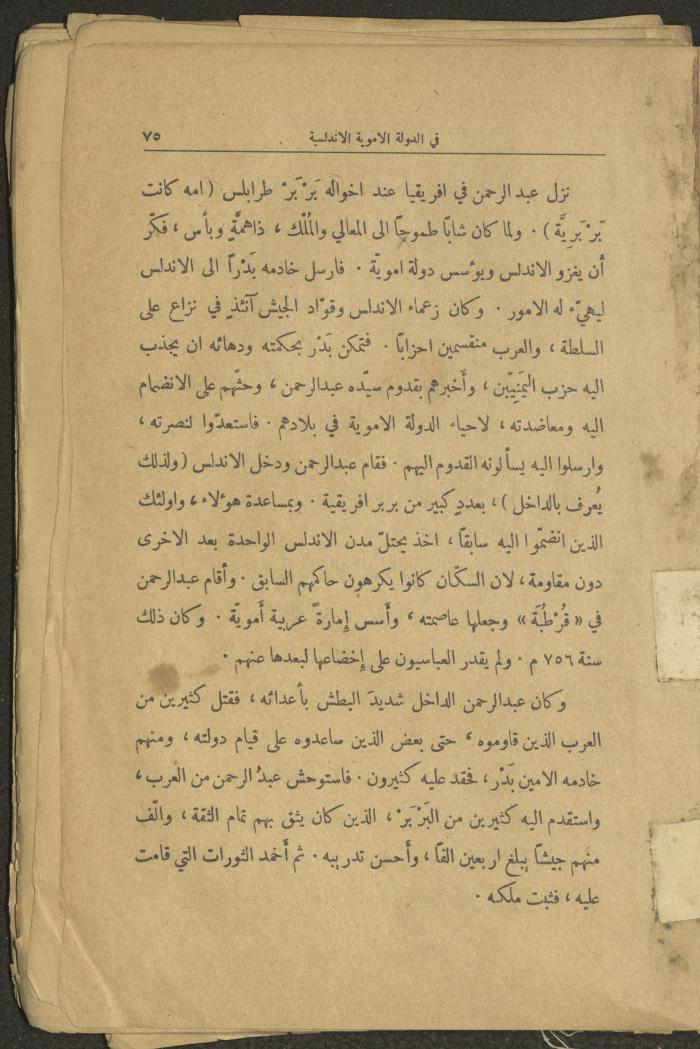 في الدولة الاموية الاندلسية ٧٥
نزل عبد الرحمن في افريقيا عند اخواله بَرْبَرْ طرابلس (امه كانت
بَرْبَرِيَّة) ٠ ولما كان شابًا طموحًا الى المعالي والمُلْك ، ذاهمَّةٍ وبأس ، فكّر
أن يغزو الاندلس ويؤسس دولة امويّة ٠ فارسل خادمه بَدْراً الى الاندلس
ليهيّء له الامور ٠ وكان زعماء الاندلس وقوّاد الجيش آنئذٍ في نزاع على
السلطة ، والعرب منقسمين احزابًا ٠ فتمكن بَدْر بحكمته ودهائه ان يجذب
اليه حزب اليَمَنِيّين ، وأخبرهم بقدوم سيّده عبدالرحمن ، وحثّهم على الانضمام
اليه ومعاضدته ، لاحياء الدولة الاموية في بلادهم ٠ فاستعدّوا لنصرته ،
وارسلوا اليه يسألونه القدوم اليهم ٠ فقام عبدالرحمن ودخل الاندلس (ولذلك
يُعرف بالداخل) ، بعددٍ كبير من بربر افريقية ٠ وبمساعدة هؤلاء ، واولئك
الذين انضمّوا اليه سابقًا ، اخذ يحتلّ مدن الاندلس الواحدة بعد الاخرى
دون مقاومة ، لان السكّان كانوا يكرهون حاكمهم السابق ٠ وأقام عبدالرحمن
في « قُرْطُبَة » وجعلها عاصمته ، وأسس إِمارةً عربية أَمويّة ٠ وكان ذلك
سنة ٧٥٦ م ٠ ولم يقدر العباسيون على إِخضاعها لبعدها عنهم ٠
وكان عبدالرحمن الداخل شديدَ البطش بأعدائه ، فقتل كثيرين من
العرب الذين قاوموه ، حتى بعض الذين ساعدوه على قيام دولته ، ومنهم
خادمه الامين بَدْر ، فحقد عليه كثيرون ٠ فاستوحش عبدُ الرحمن من العرب ،
واستقدم اليه كثيرين من البَرْبَرْ ، الذين كان يثق بهم تمام الثقة ، والّف
منهم جيشًا يبلغ اربعين الفًا ، وأَحسن تدريبه ٠ ثم أَخمد الثورات التي قامت
عليه ، فثبت ملكه ٠